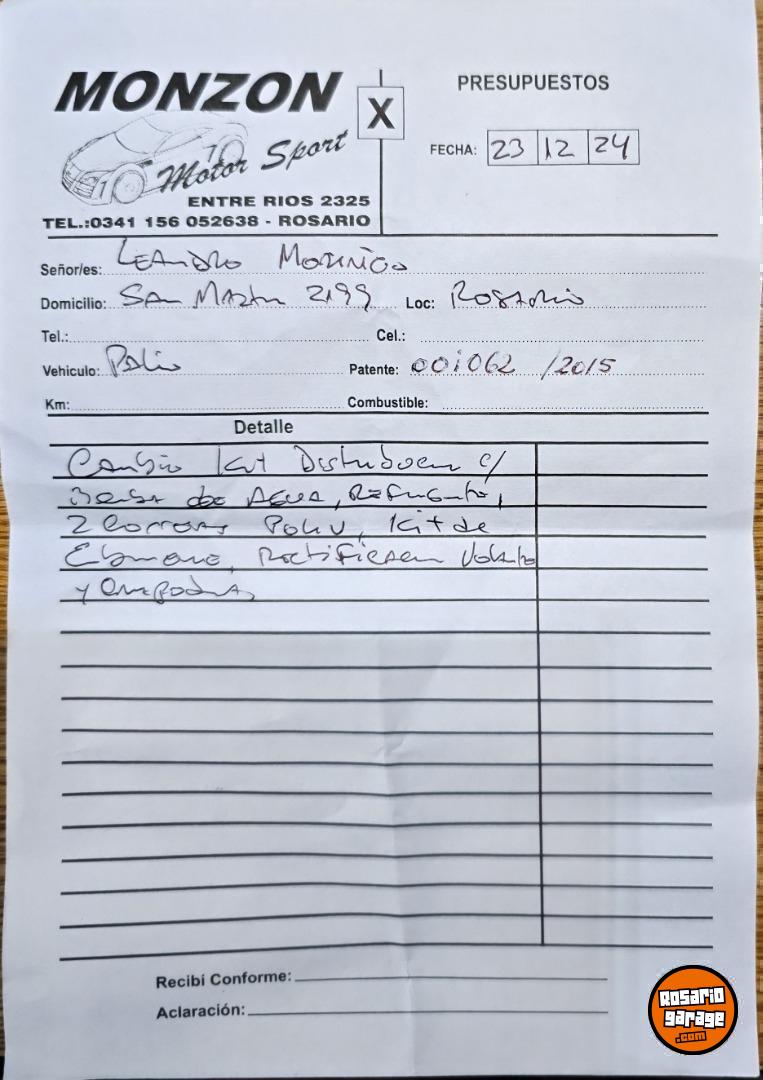 MONZON
Motor Sport
ENTRE RIOS 2325
TEL.:0341 156 052638 - ROSARIO
X
PRESUPUESTOS
FECHA: 23 12 24
Señor/es: Leandro
Domicilio: San Martin 2199 Loc: Rosario
Tel.: Cel.:
Vehiculo: Palio Patente: 00i062 /2015
Km: Combustible:
Detalle
Cambio Kit Distribucion c/
Bomba de Agua, Refrigerante,
2 Correas Poly V, Kit de
Embrague, Rectificacion Volante
y
Recibí Conforme:
Aclaración:
Rosario
garage
.com